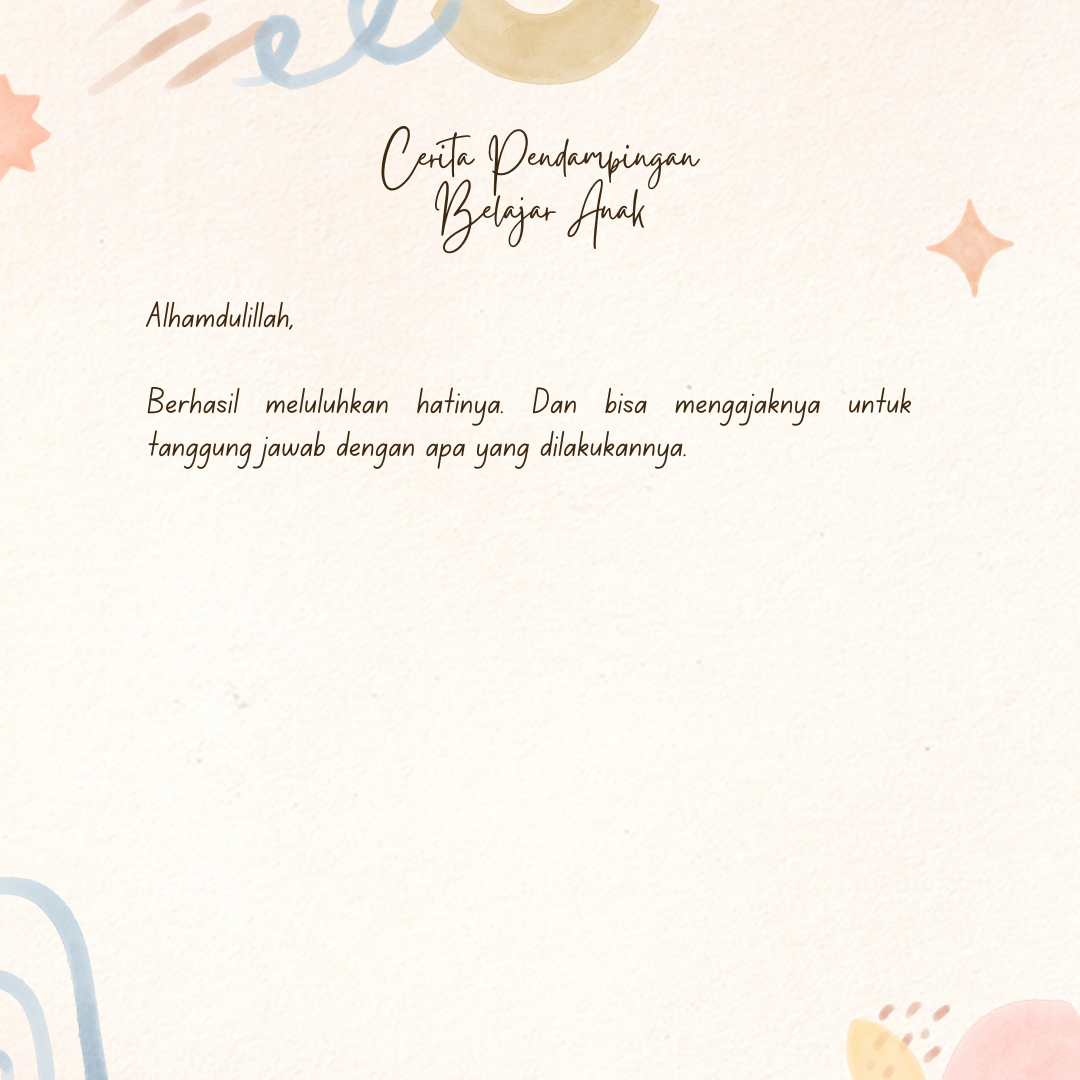 Cerita Pendampingan
Belajar Anak
Alhamdulillah,
Berhasil meluluhkan hatinya. Dan bisa mengajaknya untuk
tanggung jawab dengan apa yang dilakukannya.